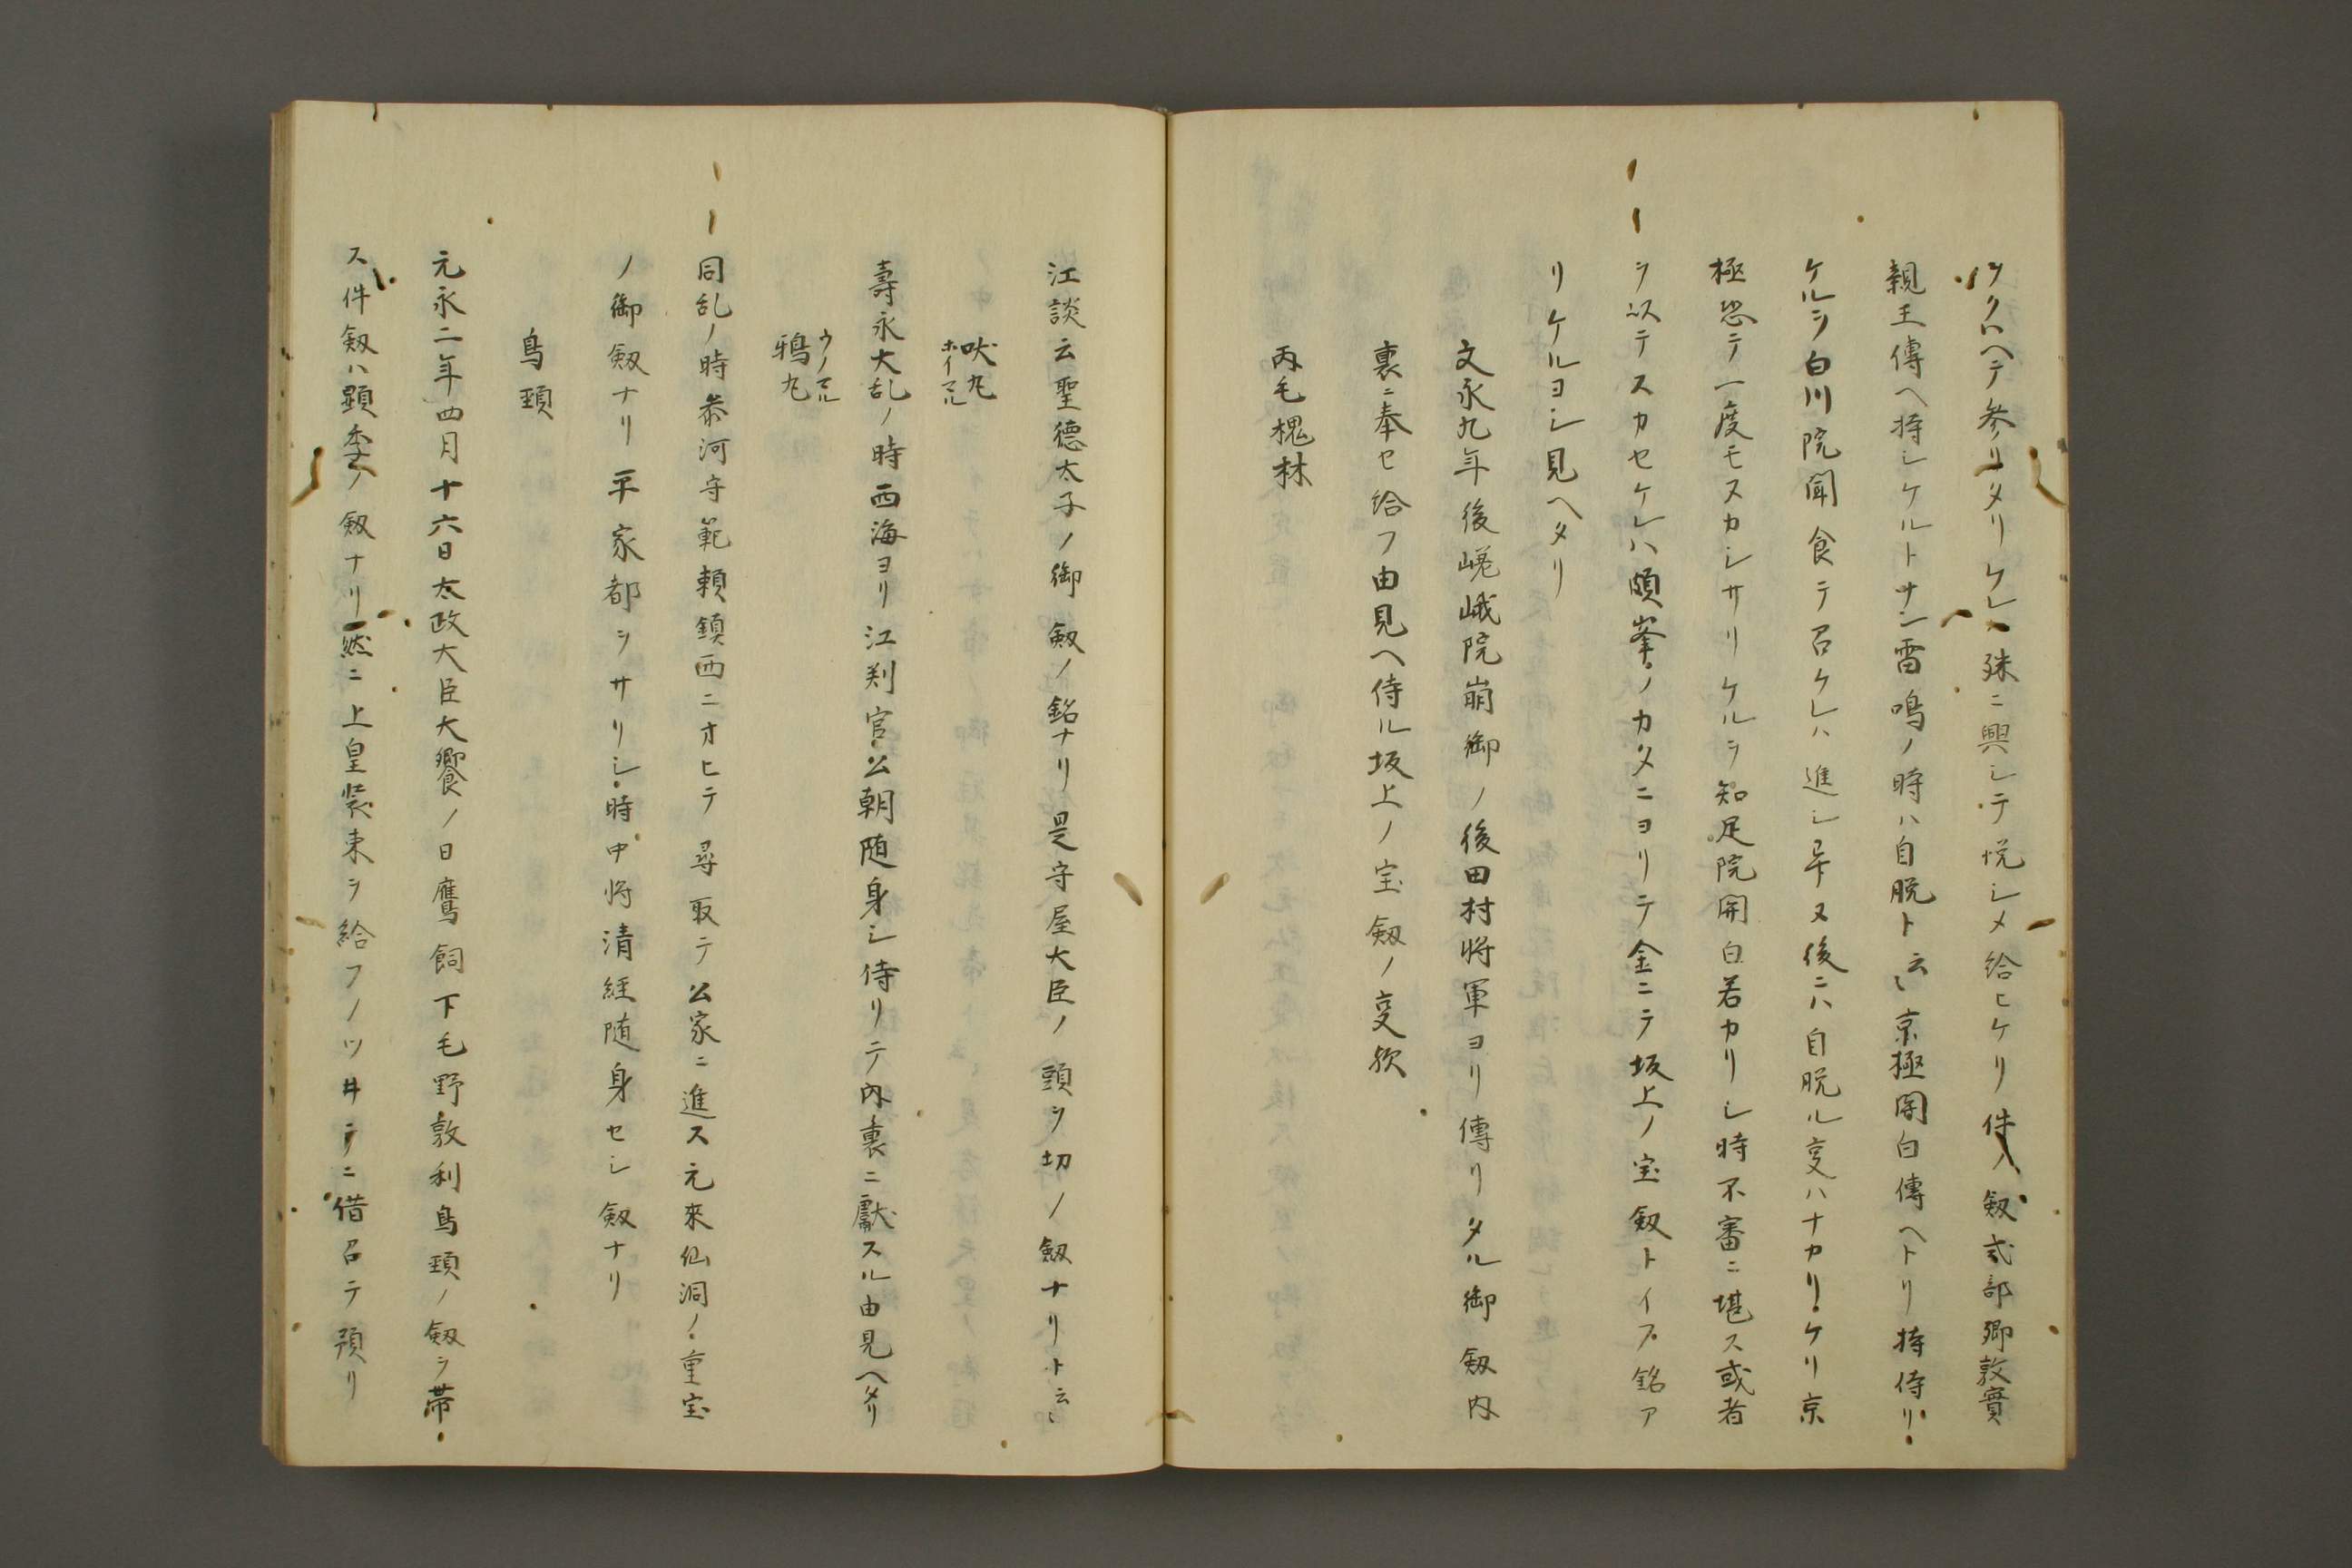 ツクハヘテ参リタリケレハ殊ニ興シテ悦シメ給ヒケリ件ノ剱式部卿敦實
親王傳へ持シケルトサン雷鳴ノ時ハ自脱ト云〻京極関白傳ヘトリ持侍リ
ケルヲ白川院聞食テ召ケレハ進シ畢ヌ後ニハ自脱ル事ハナカリケリ京
極恐テ一度モヌカレサリケルヲ知足院関白若カリシ時不審ニ堪ス或者
ヲ以テヌカセケレハ頗峯ノカタニヨリテ金ニテ坂上ノ宝剱トイフ銘ア
リケルヨシ見ヘタリ
文永九年後嵯峨院崩御ノ後田村将軍ヨリ傳リタル御剱内
裏ニ奉セ給フ由見ヘ侍ル坂上ノ宝剱ノ事歟
丙毛槐林
江談云聖徳太子ノ御剱ノ銘ナリ是守屋大臣ノ頭ヲ切ノ剱ナリト云〻
吠丸 ホイマル
壽永大乱ノ時西海ヨリ江判官公朝随身シ侍リテ内裏ニ獻スル由見ヘタリ
鵶丸 ウノマル
同乱ノ時参河守範頼鎮西ニオヒテ尋取テ公家ニ進ス元來仙洞ノ重宝
ノ御剱ナリ平家都ヲサリシ時中将清経随身セシ剱ナリ
鳥頸
元永二年四月十六日太政大臣大饗ノ日鷹飼下毛野敦利鳥頸ノ剱ヲ帯
ス件剱ハ顕季ノ剱ナリ然ニ上皇装束ヲ給フノツ井テニ借召テ預リ